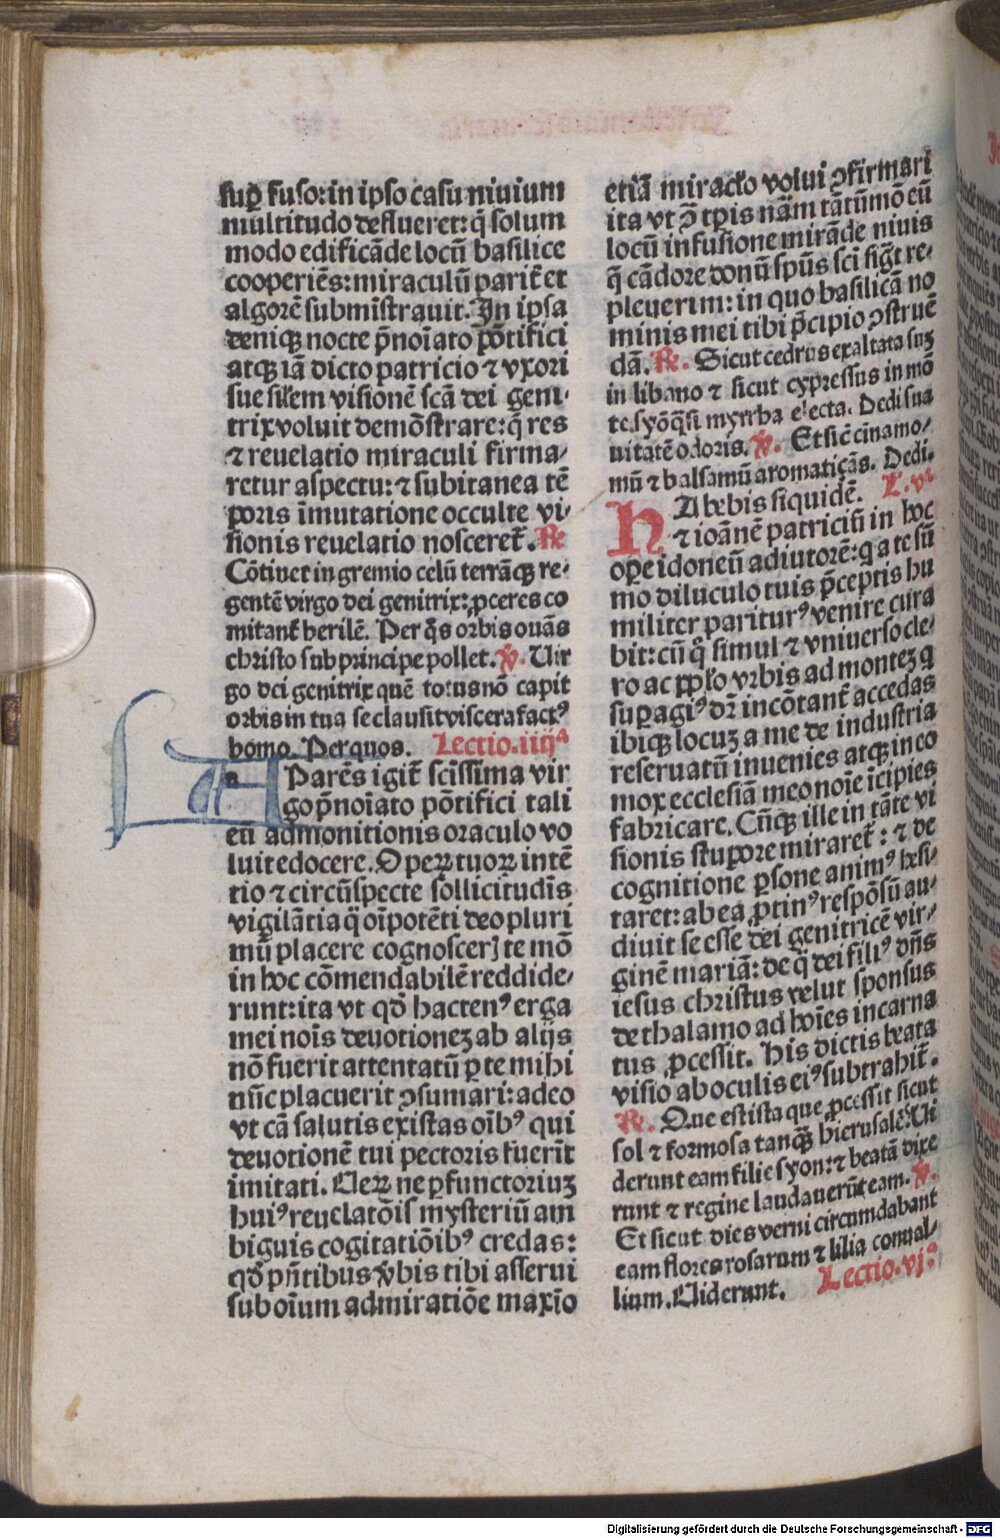 suꝑ fuso: in ipso casu niuium
multitudo deflueret: q̄ solum
modo edificāde locū basilice
cooperiēs: miraculū parit̄ et
algorē submīstrauit. In ipsa
deniqꝫ nocte p̄noīato pōtifici
atqꝫ iā dicto patricio ⁊ vxori
sue sil̄em visionē scā dei geni-
trix voluit demōstrare: q̄ res
⁊ reuelatio miraculi firma-
retur aspectu: ⁊ subitanea tē
poris īmutatione occulte vi-
sionis reuelatio nosceret̄. ℟
Cōtinet in gremio celū terrāqꝫ re-
gentē virgo dei genitrix: ꝓceres co
mitant̄ herilē. Per q̄s orbis ouās
christo sub principe pollet. ℣. Uir
go dei genitrix quē totus nō capit
orbis in tua se clausit viscera factꝰ
homo. Per quos. Lectio .iiijᵃ
A Parēs igit̄ scīssima vir
go p̄noīato pōtifici tali
eū admonitionis oraculo vo
luit edocere. Operꝝ tuorꝝ intē
tio ⁊ circūspecte sollicitudīs
vigilātia q̄ oīpotēti deo pluri
mū placere cognoscerꝭ te mō
in hoc cōmendabilē reddide-
runt: ita vt qd̄ hactenꝰ erga
mei noīs deuotioneꝫ ab alijs
nō fuerit attentatū ꝑ te mihi
nūc placuerit ꝯsumari: adeo
vt cā salutis existas oībꝰ qui
deuotionē tui pectoris fuerīt
imitati. Uerꝝ ne ꝑfunctoriuꝫ
huiꝰ reuelatōis mysteriū am
biguis cogitatiōibꝰ credas:
qd̄ p̄ntibus v̄bis tibi asserui
sub oīum admiratiōe maxīo
etiā miraclo volui ꝯfirmari
ita vt ꝑ tp̄is nām tātūmō eū
locū infusione mirāde niuis
q̄ cādore donū sp̄us scī siḡt re-
pleuerim: in quo basilicā no
minis mei tibi p̄cipio ꝯstruē
dā. ℟. Sicut cedrus exaltata suꝫ
in libano ⁊ sicut cypressus in mō
te syō q̄si myrrha electa. Dedi sua
uitatē odoris. ℣. Et sic̄ cinamo-
mū ⁊ balsamū aromatiçās. Dedi.
HAbebis siquidē. L. vᵗ
⁊ ioānē patriciū in hoc
ope idoneū adiutorē: q a te sū
mo diluculo tuis p̄ceptis hu
militer pariturꝰ venire cura
bit: cū q̄ simul ⁊ vniuerso cle-
ro ac pp̄lo vrbis ad monteꝫ q
suꝑagiꝰ dr̄ incōtant̄ accedas
ibiqꝫ locuꝫ a me de industria
reseruatū inuenies atqꝫ in eo
mox ecclesiā meo noīe īcipies
fabricare. Cūqꝫ ille in tāte vi
sionis stupore miraret̄: ⁊ de
cognitione ꝑsone animꝰ hesi-
taret: ab ea ꝓtinꝰ respōsū au-
diuit se esse dei genitricē vir-
ginē mariā: de q̄ dei filiꝰ dn̄s
iesus christus velut sponsus
de thalamo ad hoīes incarna
tus ꝓcessit. His dictis beata
visio ab oculis eiꝰ subtrahit̄.
℟. Que est ista que ꝓcessit sicut
sol ⁊ formosa tanqꝫ hierusalē. Ui
derunt eam filie syon: ⁊ beatā dixe
runt ⁊ regine laudauerūt eam. ℣.
Et sicut dies verni circumdabant
eam flores rosarum ⁊ lilia conual-
lium. Uiderunt. Lectio .vjᵃ
Digitalisierung gefördert durch die Deutsche Forschungsgemeinschaft - DFG